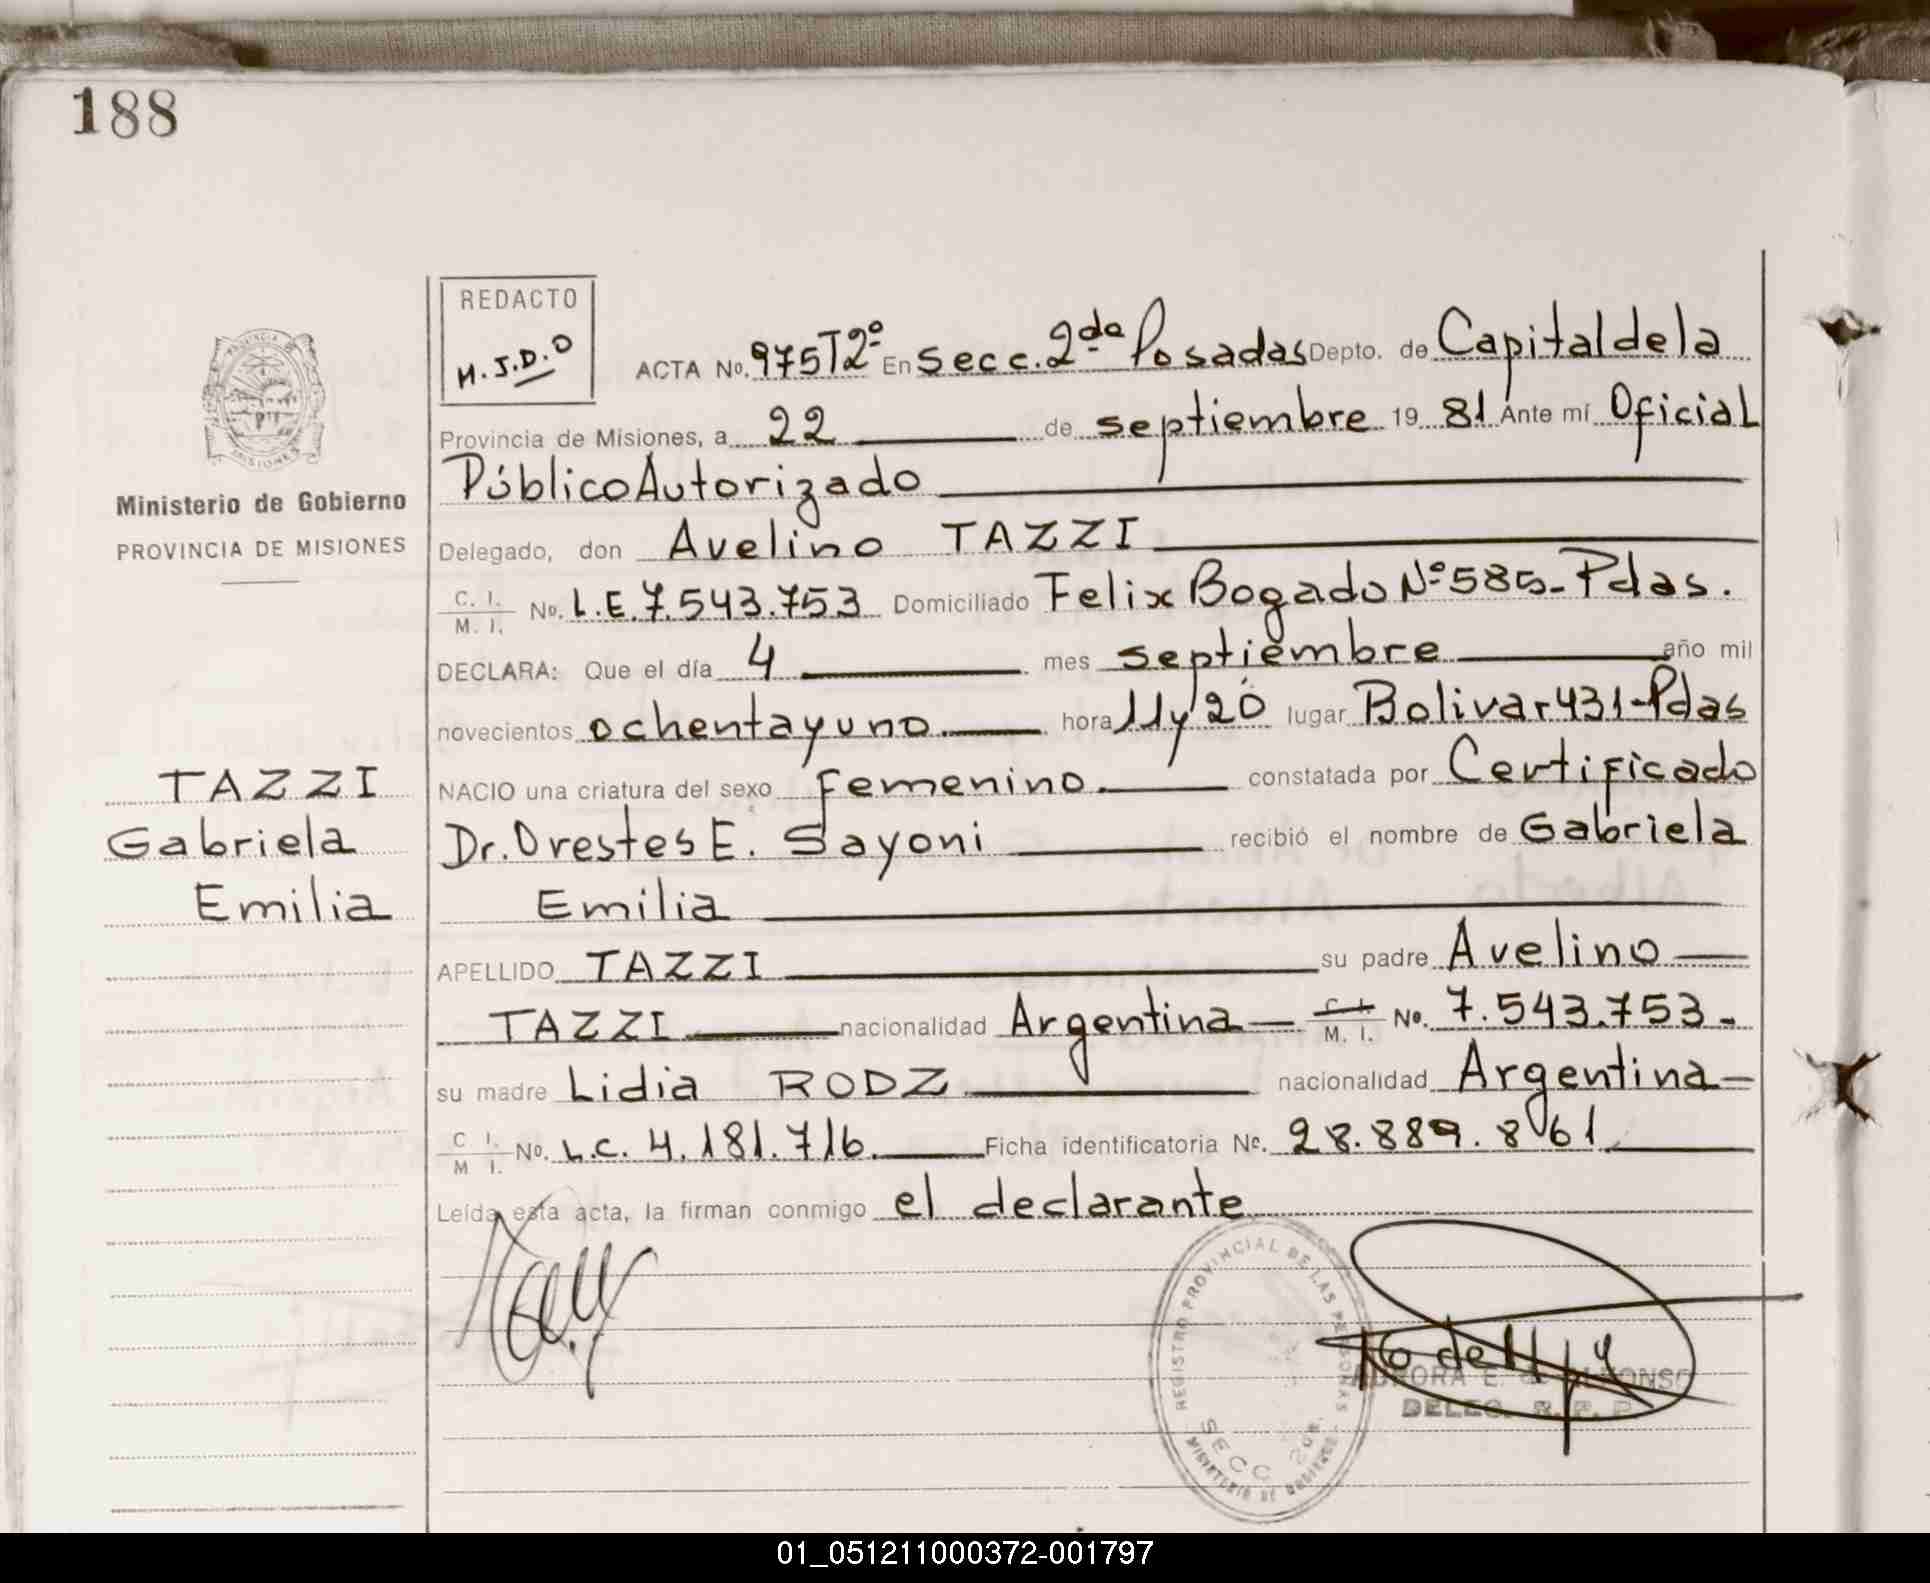 188
REDACTO
M.J.D.O
ACTA No. 975T2º En Secc. 2da Posadas Depto. de Capital de la
Provincia de Misiones, a 22 de septiembre 1981 Ante mí Oficial
Público Autorizado
Ministerio de Gobierno
PROVINCIA DE MISIONES
Delegado, don Avelino TAZZI
C. I. M. I. No. L.E. 7.543.753 Domiciliado Felix Bogado Nº 585-Pdas.
DECLARA: Que el día 4 mes septiembre año mil
novecientos ochenta y uno hora 11 y 20 lugar Bolivar 431-Pdas
NACIO una criatura del sexo Femenino. constatada por Certificado
Dr. Orestes E. Sayoni recibió el nombre de Gabriela
Emilia
TAZZI
Gabriela
Emilia
APELLIDO TAZZI su padre Avelino
TAZZI nacionalidad Argentina C. I. M. I. No. 7.543.753-
su madre Lidia RODZ nacionalidad Argentina
C I. M I. No. L.C. 4.181.716. Ficha identificatoria No. 28.889.861
Leída esta acta, la firman conmigo el declarante
REGISTRO PROVINCIAL DE LAS PERSONAS
SECC. 2da.
MINISTERIO DE GOBIERNO
AURORA E. de ALFONSO
DELEG. R. P. P.
01_051211000372-001797